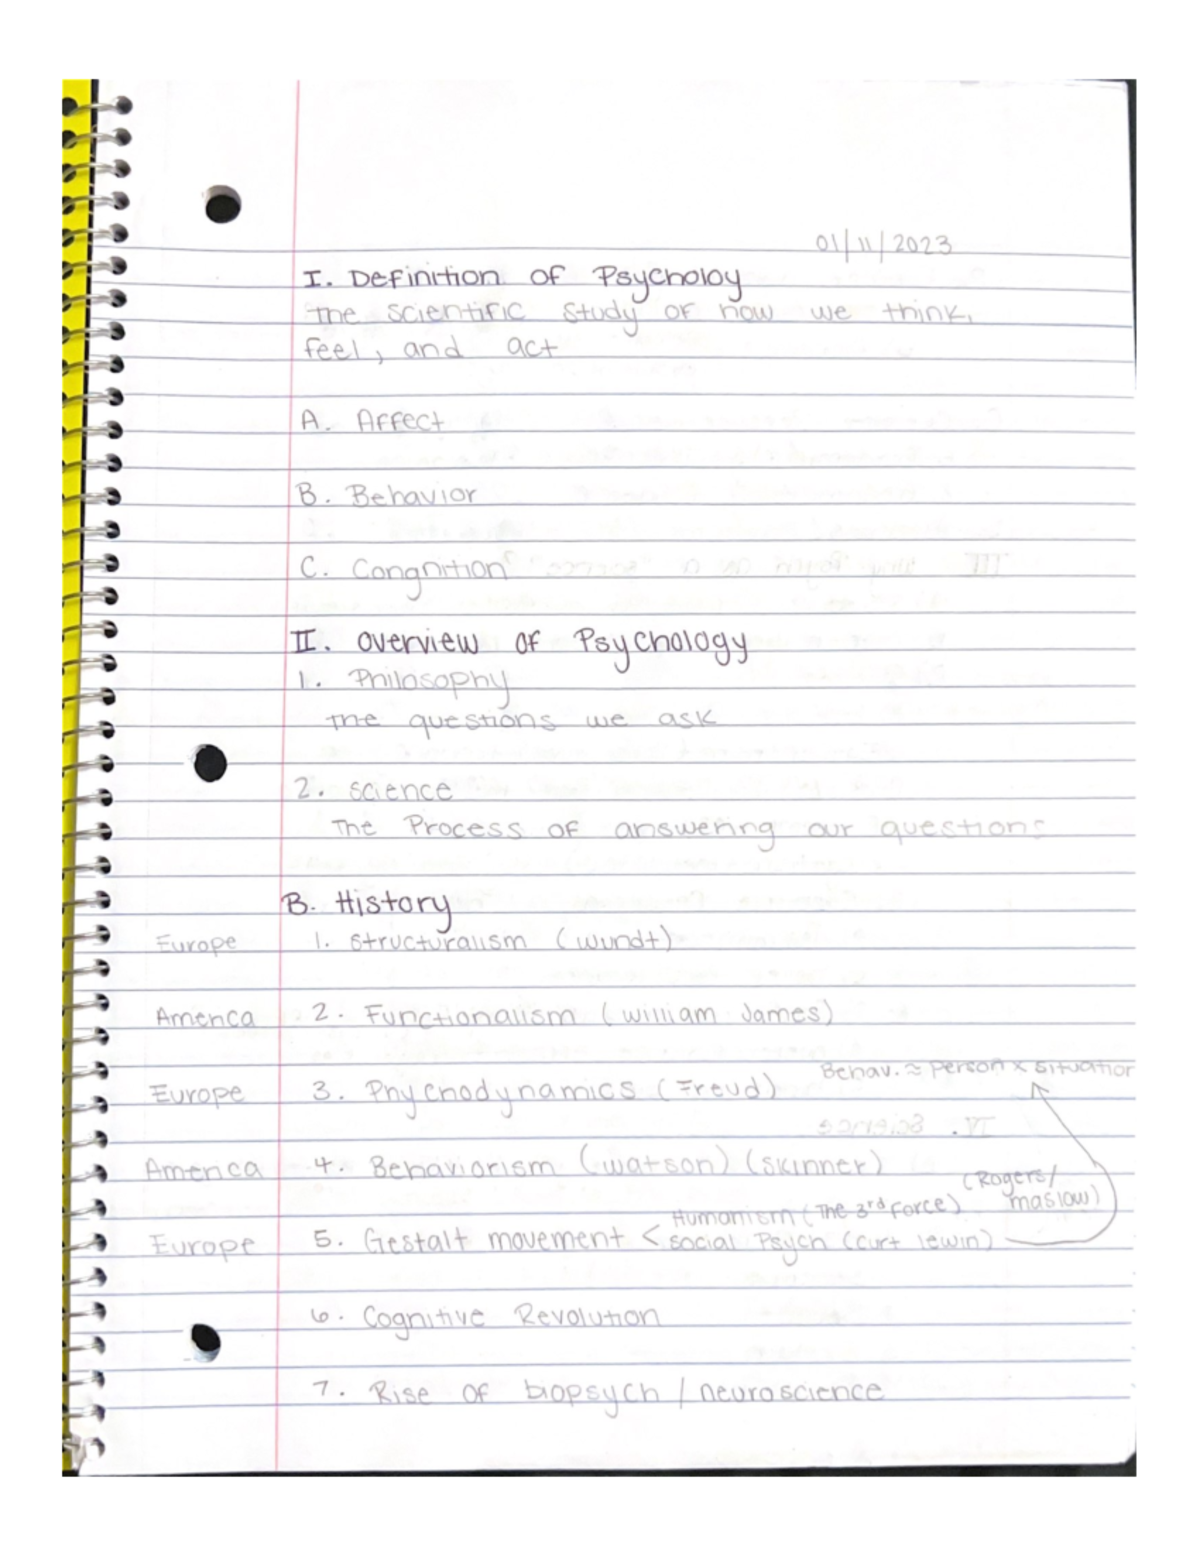 01/11/2023
I. Definition of Psycholoy
The scientific study of how we think,
feel, and act
A. Affect
B. Behavior
C. Congnition
II. Overview of Psychology
1. Philosophy
The questions we ask
2. Science
The Process of answering our questions
B. History
Europe 1. Structuralism (Wundt)
America 2. Functionalism (William James)
Behav. ≈ person x situation
Europe 3. Phychodynamics (Freud)
America 4. Behaviorism (Watson) (Skinner)
(Rogers/
Humanism (The 3rd Force) maslow)
Europe 5. Gestalt movement < social Psych (Curt lewin)
6. Cognitive Revolution
7. Rise of biopsych / neuroscience